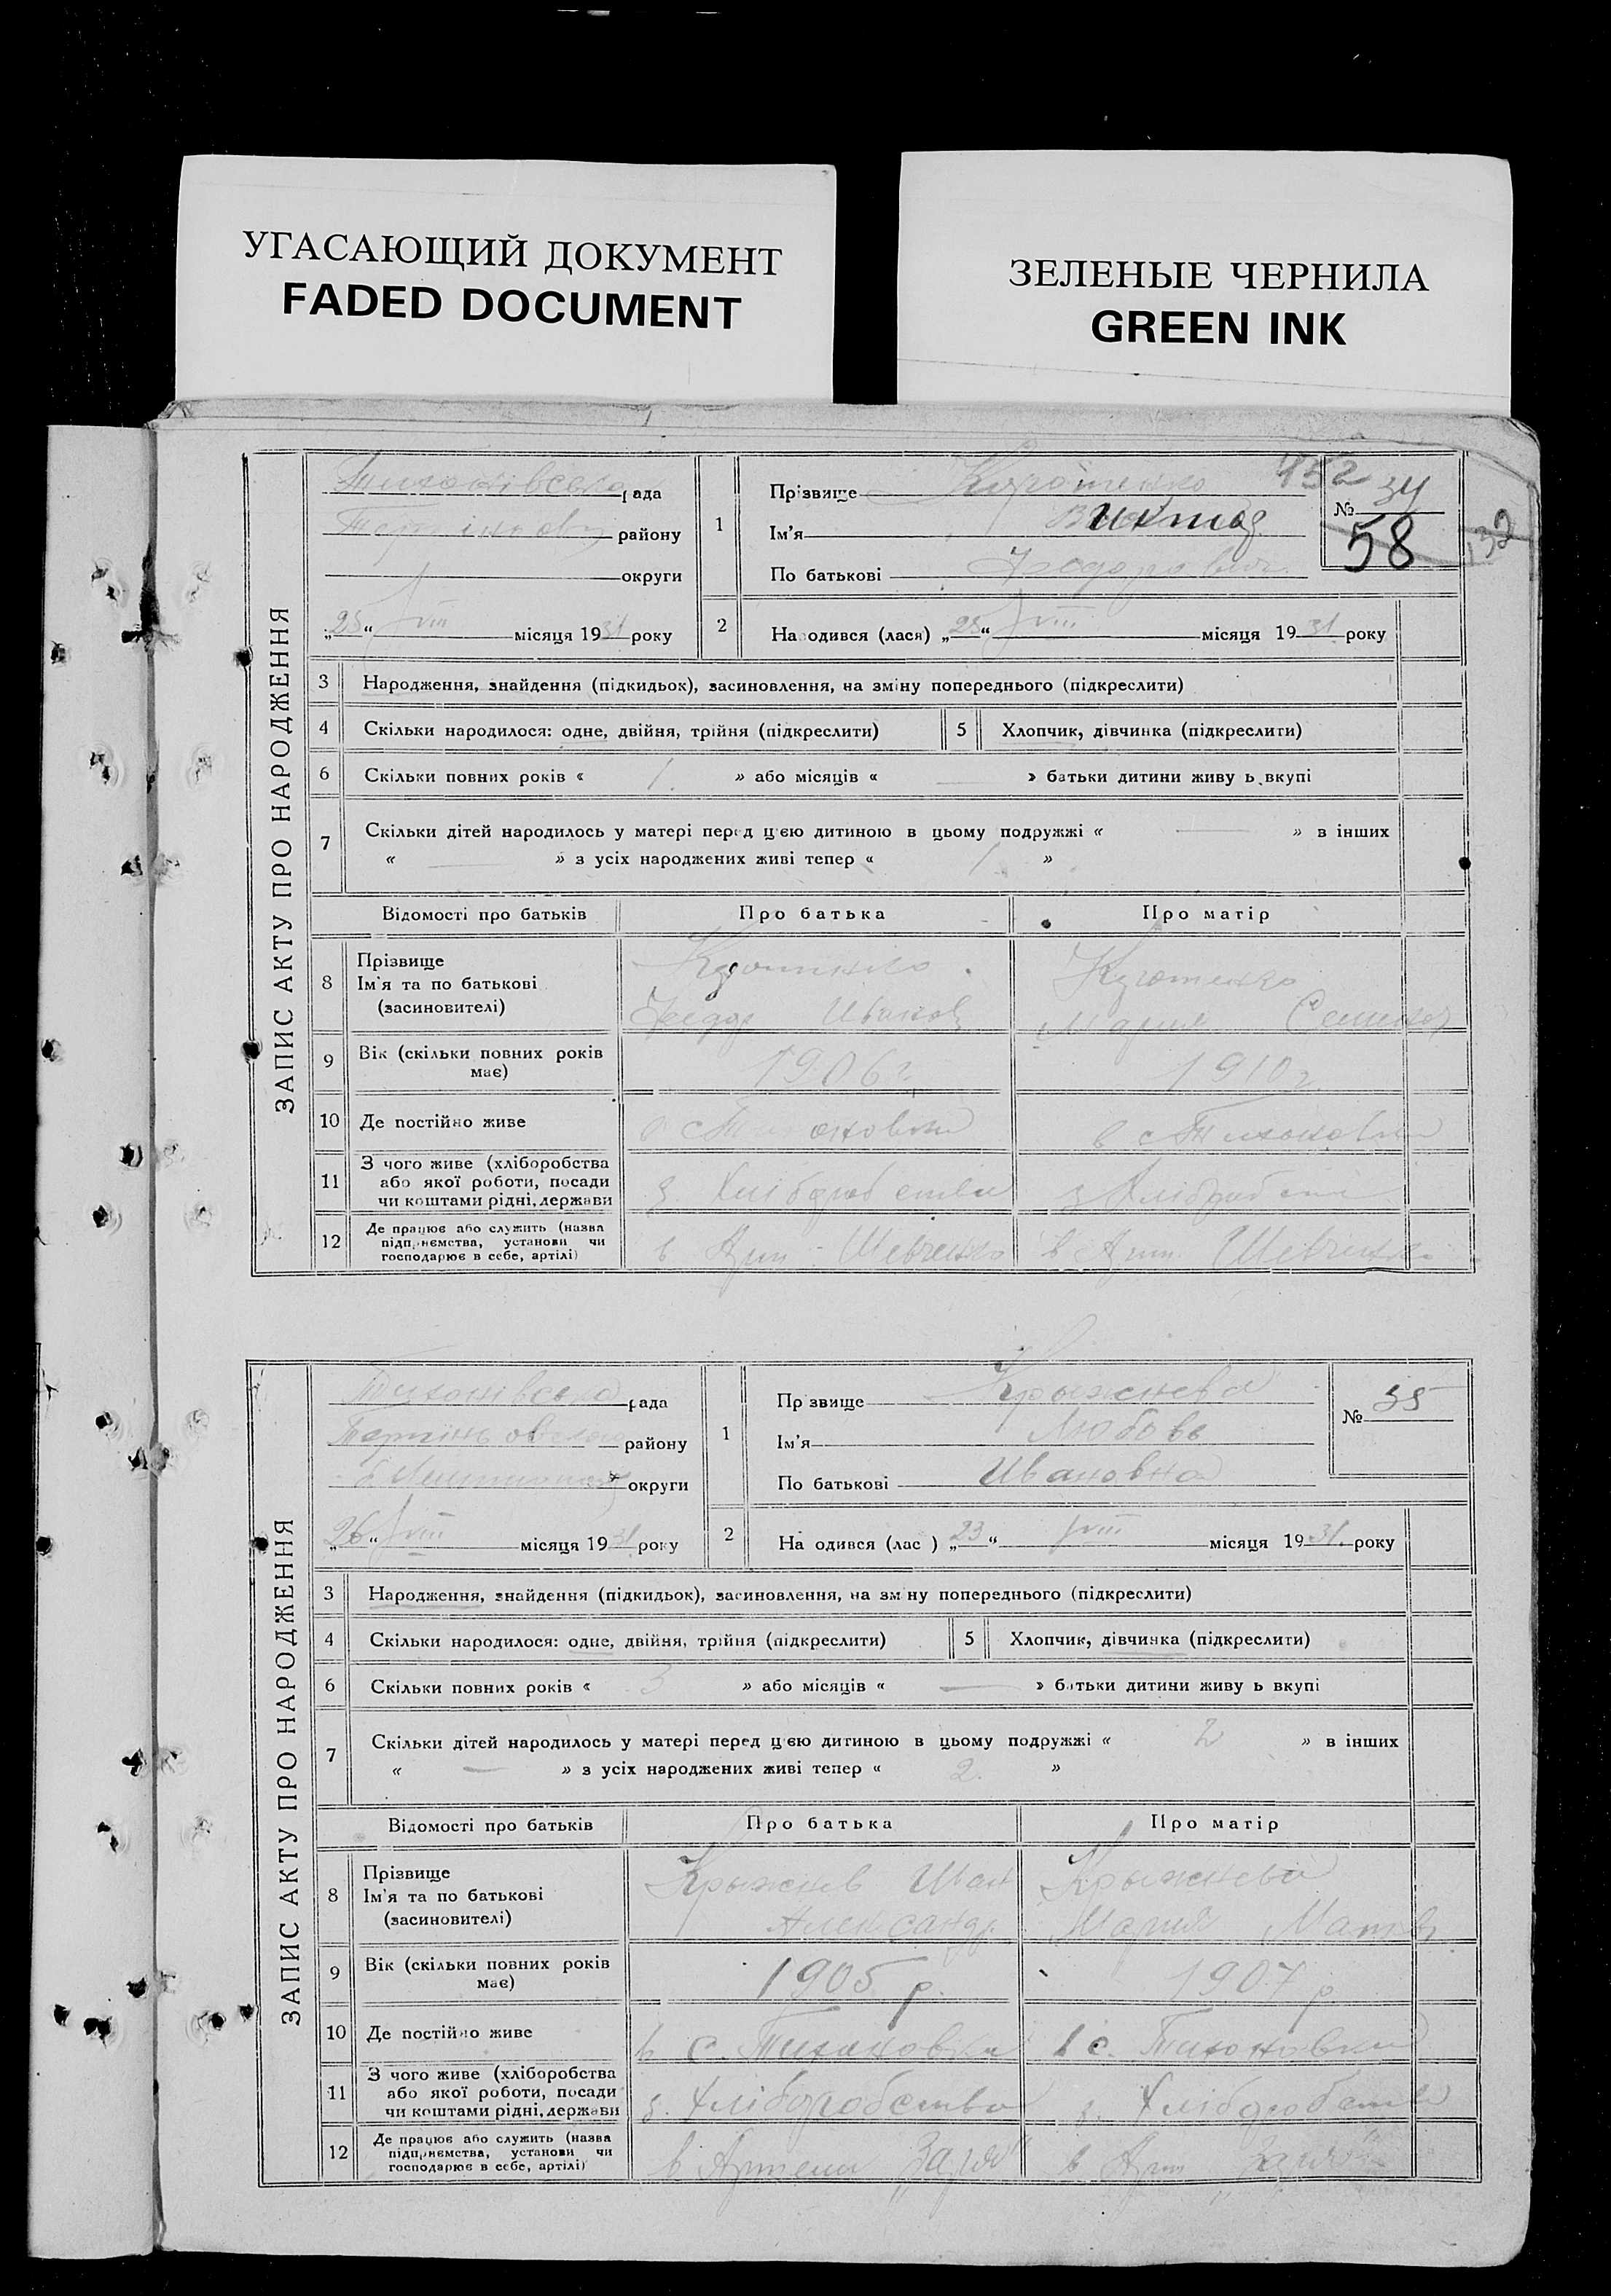 УГАСАЮЩИЙ ДОКУМЕНТ
FADED DOCUMENT
ЗЕЛЕНЫЕ ЧЕРНИЛА
GREEN INK
ЗАПИС АКТУ ПРО НАРОДЖЕННЯ
Тихонівська рада
району
округи
„25“ VIII місяця 1931 року
1
Прізвище
Ім'я
По батькові Федорович
№ 34
58
132
2
На одився (лася) „23“ VIII місяця 1931 року
3 Народження, знайдення (підкидьок), засиновлення, на зміну попереднього (підкреслити)
4 Скільки народилося: одне, двійня, трійня (підкреслити)
5 Хлопчик, дівчинка (підкреслити)
6 Скільки повних років « 1. » або місяців « — » батьки дитини живу ь вкупі
7 Скільки дітей народилось у матері перед цією дитиною в цьому подружжі « — » в інших
« — » з усіх народжених живі тепер « 1 »
Відомості про батьків Про батька Про матір
8 Прізвище
Ім'я та по батькові
(засиновителі)
Федор Иванов
Мария Семенов
9 Вік (скільки повних років має) 1906 г. 1910 г.
10 Де постійно живе в с Тихоновки в с Тихоновки
11 З чого живе (хліборобства
або якої роботи, посади
чи коштами рідні, держави
з. Хліборобства з Хліборобства
12 Де працює або служить (назва
підприємства, установи чи
господарює в себе, артілі)
в Арт. Шевченко в Арт. Шевченко
ЗАПИС АКТУ ПРО НАРОДЖЕННЯ
Тихонівська рада
району
округи
„26“ VIII місяця 1931 року
1
Пр звище Крыжнева
Ім'я Любовь
По батькові Ивановна
№ 35
2
На одився (лас ) „23“ VIII місяця 1931. року
3 Народження, знайдення (підкидьок), засиновлення, на зм ну попереднього (підкреслити)
4 Скільки народилося: одне, двійня, трійня (підкреслити)
5 Хлопчик, дівчинка (підкреслити)
6 Скільки повних років « 3 » або місяців « — » батьки дитини живу ь вкупі
7 Скільки дітей народилось у матері перед цією дитиною в цьому подружжі « 2 » в інших
« — » з усіх народжених живі тепер « 2. »
Відомості про батьків Про батька Про матір
8 Прізвище
Ім'я та по батькові
(засиновителі)
Крыжнев Иван
Александр.
Крыжнева
Мария Матв.
9 Вік (скільки повних років має) 1905 р. 1907 р
10 Де постійно живе в с. Тихановки в с. Тихоновки
11 З чого живе (хліборобства
або якої роботи, посади
чи коштами рідні, держави
з. Хліборобства з. Хліборобства
12 Де працює або служить (назва
підприємства, установи чи
господарює в себе, артілі)
в Артели „Заря“ в Арт „Заря“